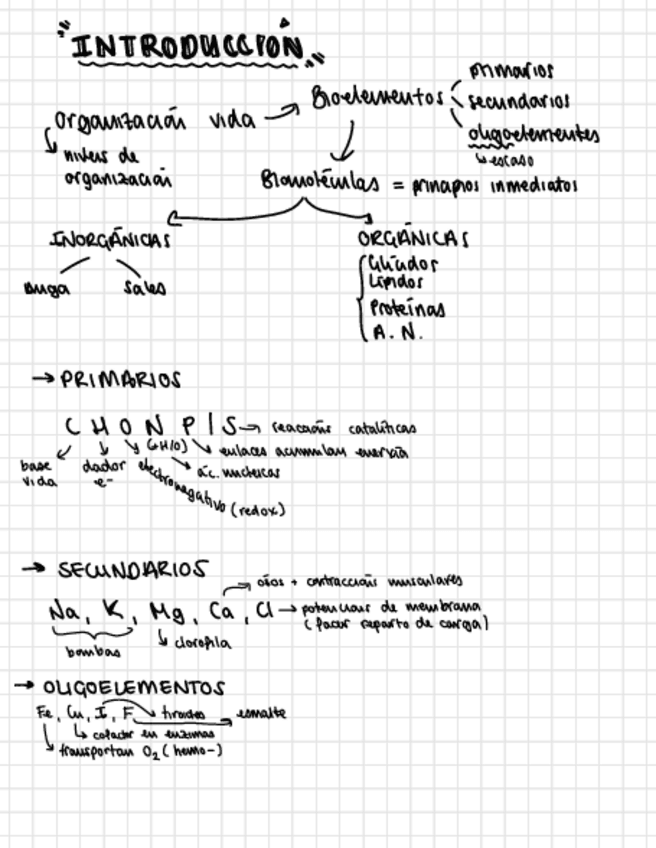 "INTRODUCCIÓN"
organización vida → Bioelementos
primarios
secundarios
oligoelementes
↳ escaso
niveles de
organización
Biomoléculas = principios inmediatos
INORGÁNICAS
ORGÁNICAS
auga
sales
Glúcidos
Lípidos
Proteínas
A. N.
→ PRIMARIOS
C H O N P | S → reaccións catalíticas
(+H/O)
enlaces acumulan enerxía
base
vida
dador
e-
electronegativo (redox)
ác. nucleicos
→ SECUNDARIOS
ósos + contraccións musculares
Na, K, Mg, Ca, Cl → potenciais de membrana
(facer reparto de carga)
bombas
↳ clorofila
→ OLIGOELEMENTOS
Fe, Cu, I, F
tiroides
esmalte
↳ cofactor en enzimas
↳ transportan O₂ (hemo-)